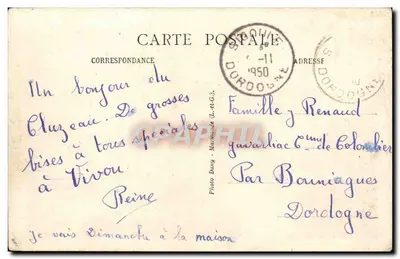 CARTE POSTALE
CORRESPONDANCE
ADRESSE
-11
1950
DORDOGNE
DORDOGNE
Un bonjour du
Cluzeau. De grosses
bises à tous spéciales
à Vivou.
Reine
Je vais Dimanche à la maison
Famille Renaud
Cne de Colombier
Par Bouniagues
Dordogne